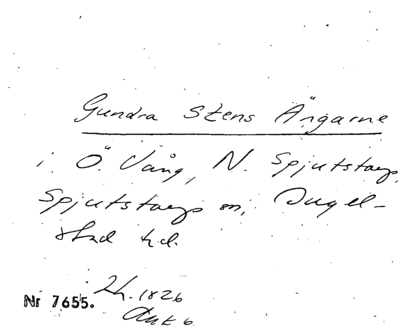 Gundra Stens Ängarne
i Ö. Vång, N. Spjutstorp,
Spjutstorps sn, Ingel-
stad hd.
Lh. 1826
Akt 6.
Nr 7655.